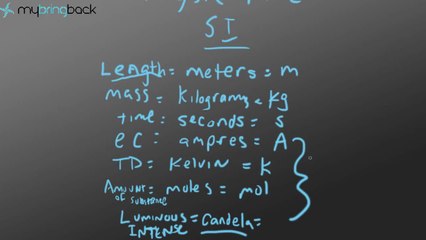 mybringback
SI
Length = meters = m
mass = Kilograms = Kg
time = seconds = s
eC = ampres = A
TD = Kelvin = K
Amount of substance = moles = mol
Luminous Intense = Candela =